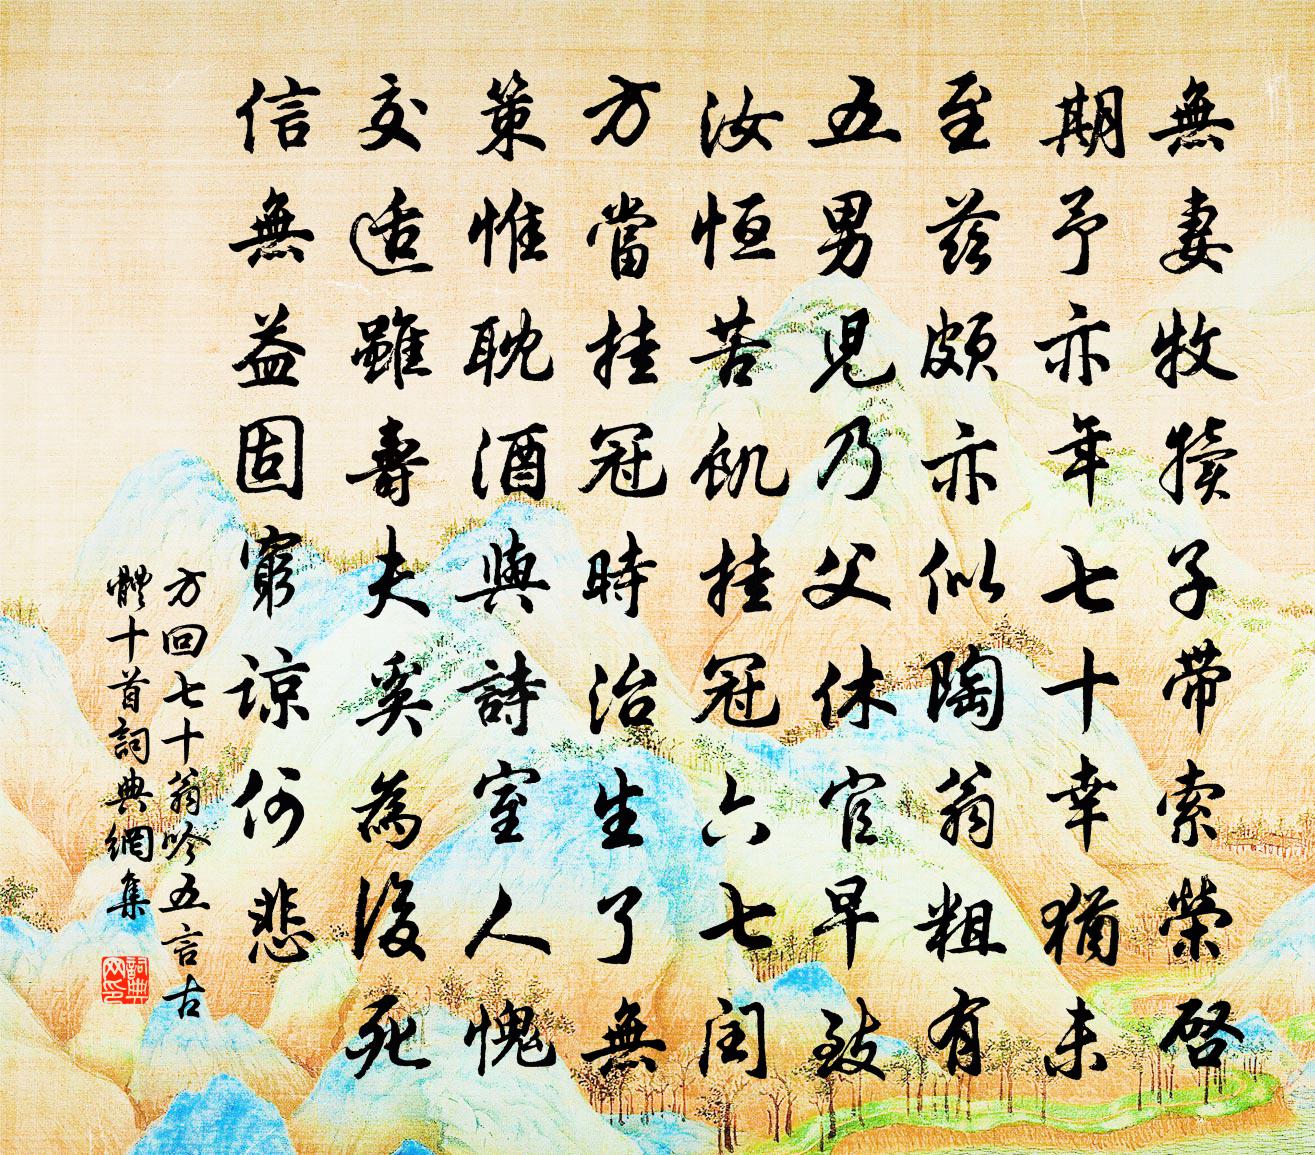 無妻牧犢子帶索榮啓
期予亦年七十幸猶未
至茲頗亦似陶翁粗有
五男兒乃父休官早致
汝恒苦飢挂冠六七閏
方當挂冠時治生了無
策惟耽酒與詩室人愧
交适雖壽夫奚為後死
信無益固窮諒何悲
方回七十翁吟五言古
體十首詞典網集
詞典网印